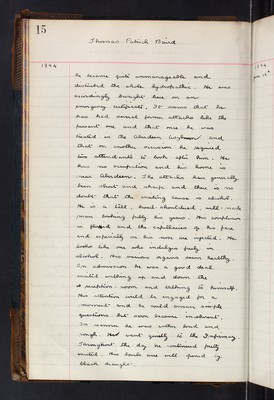 15
Thomas Patrick Baird
1894
1894
he became quite unmanageable and
disturbed the whole hydropathic. He was
accordingly brought here on an
emergency certificate. It seems that he
has had several former attacks like the
present one and that once he was
treated in the Aberdeen Asylum and
that on another occasion he required
two attendants to look after him. He
has no occupation and his home is
near Aberdeen. The attacks have generally
been short and sharp and there is no
doubt that the exciting cause is alcohol.
He is a tall, broad-shouldered well-made
man looking fully his years. His complexion
is flushed and the capillaries of his face
and especially on his nose are injected. He
looks like one who indulges freely in
alcohol. His various organs seem healthy.
On admission he was a good deal
excited walking up and down the
reception room and talking to himself.
His attention could be engaged for a
moment and he could answer simple
questions but soon became incoherent.
In manner he was rather loud and
rough. Went quietly to the Infirmary.
Throughout the day he continued pretty
excited. His bowels are well opened by
black draught.